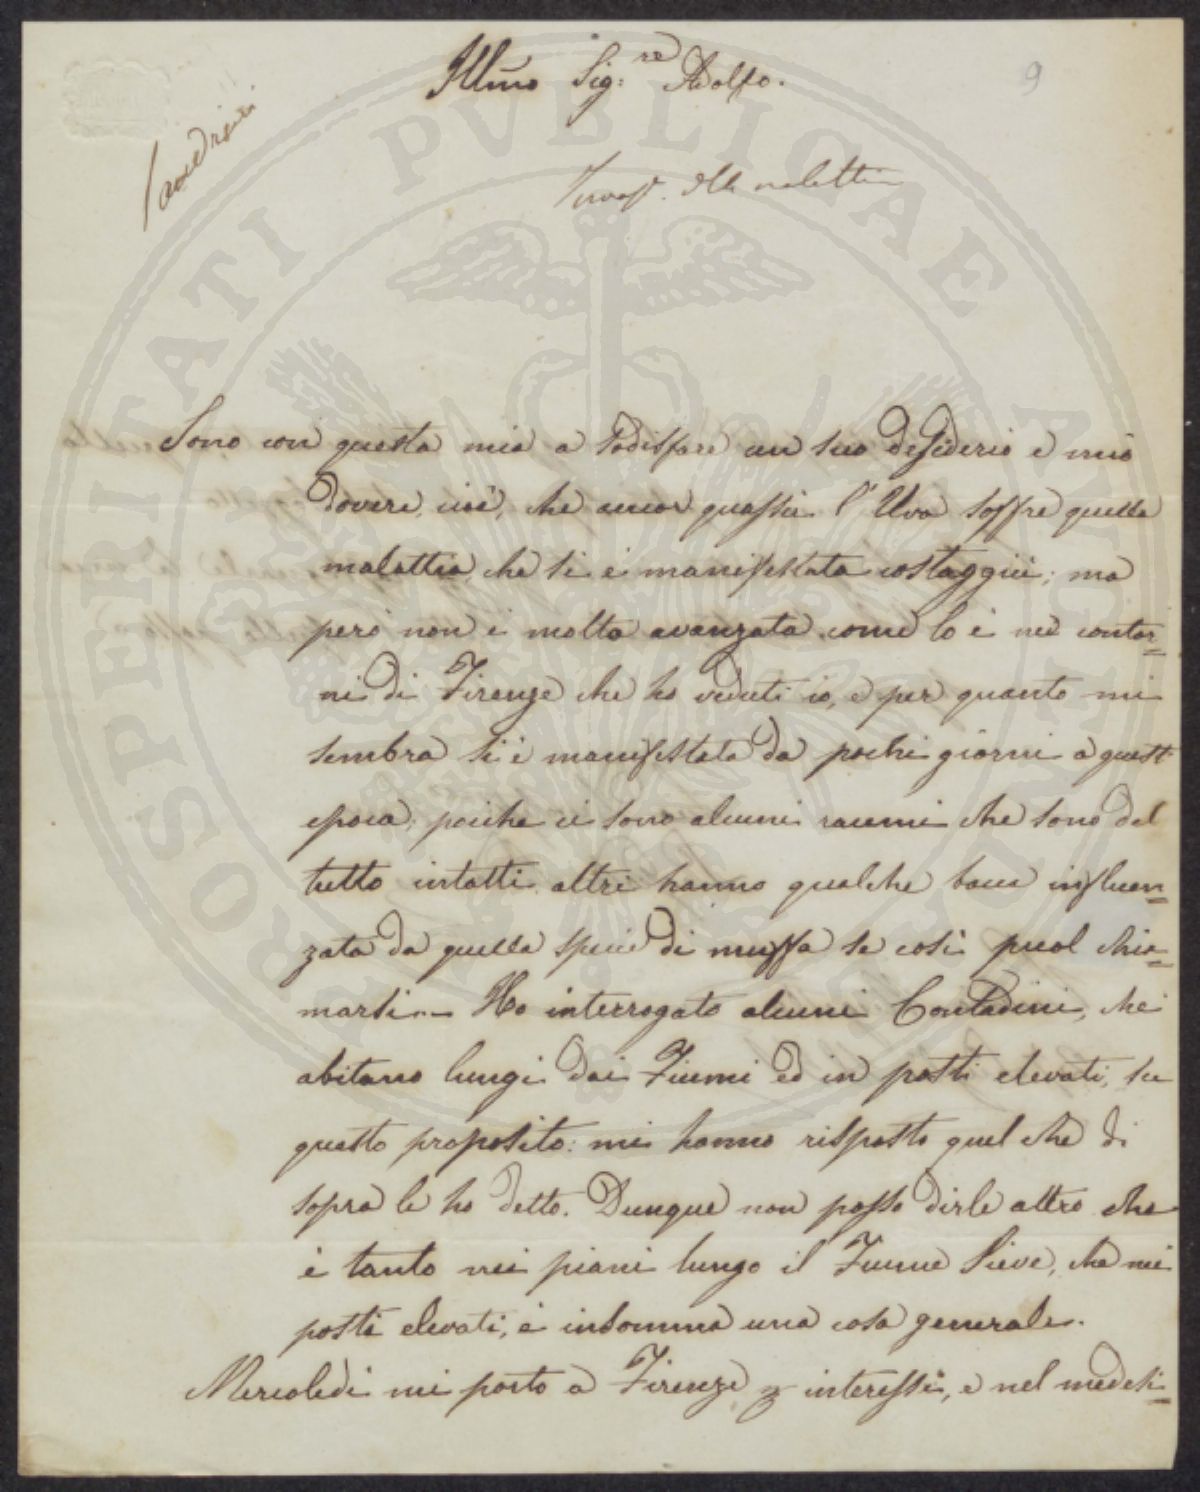 Illmo Sig:re Adolfo.
9
Sono con questa mia a sodisfare un suo desiderio e mio
dovere, cioè, che ancor quassù l'Uva soffre quella
malattia che si è manifestata costaggiù; ma
però non è molto avanzata come lo è nei contor=
ni di Firenze che ho veduti io, e per quanto mi
sembra si è manifestata da pochi giorni a quest'
epoca, poiche ci sono alcuni racemi che sono del
tutto intatti altri hanno qualche bacca influen=
zata da quella specie di muffa se così puol chia=
marsi.— Ho interrogato alcuni Contadini, che
abitano lungi dai Fiumi ed in posti elevati, su
questo proposito: mi hanno risposto quel che di
sopra le ho detto. Dunque non posso dirle altro che
è tanto nei piani lungo il Fiume Sieve, che nei
posti elevati, è insomma una cosa generale.
Mercoledì mi porto a Firenze interessi, e nel medesi=
PROSPERITATI PVBLICAE AVGENDAE